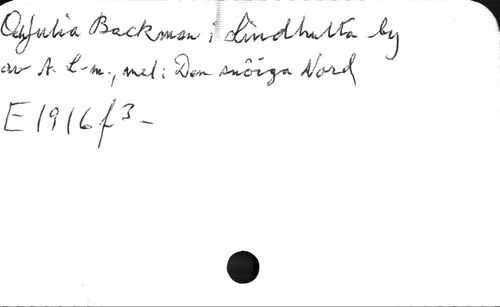 Och Julia Backman i Lindhulta by
av A. L-m., mel: Den snöiga Nord
E1916f3-